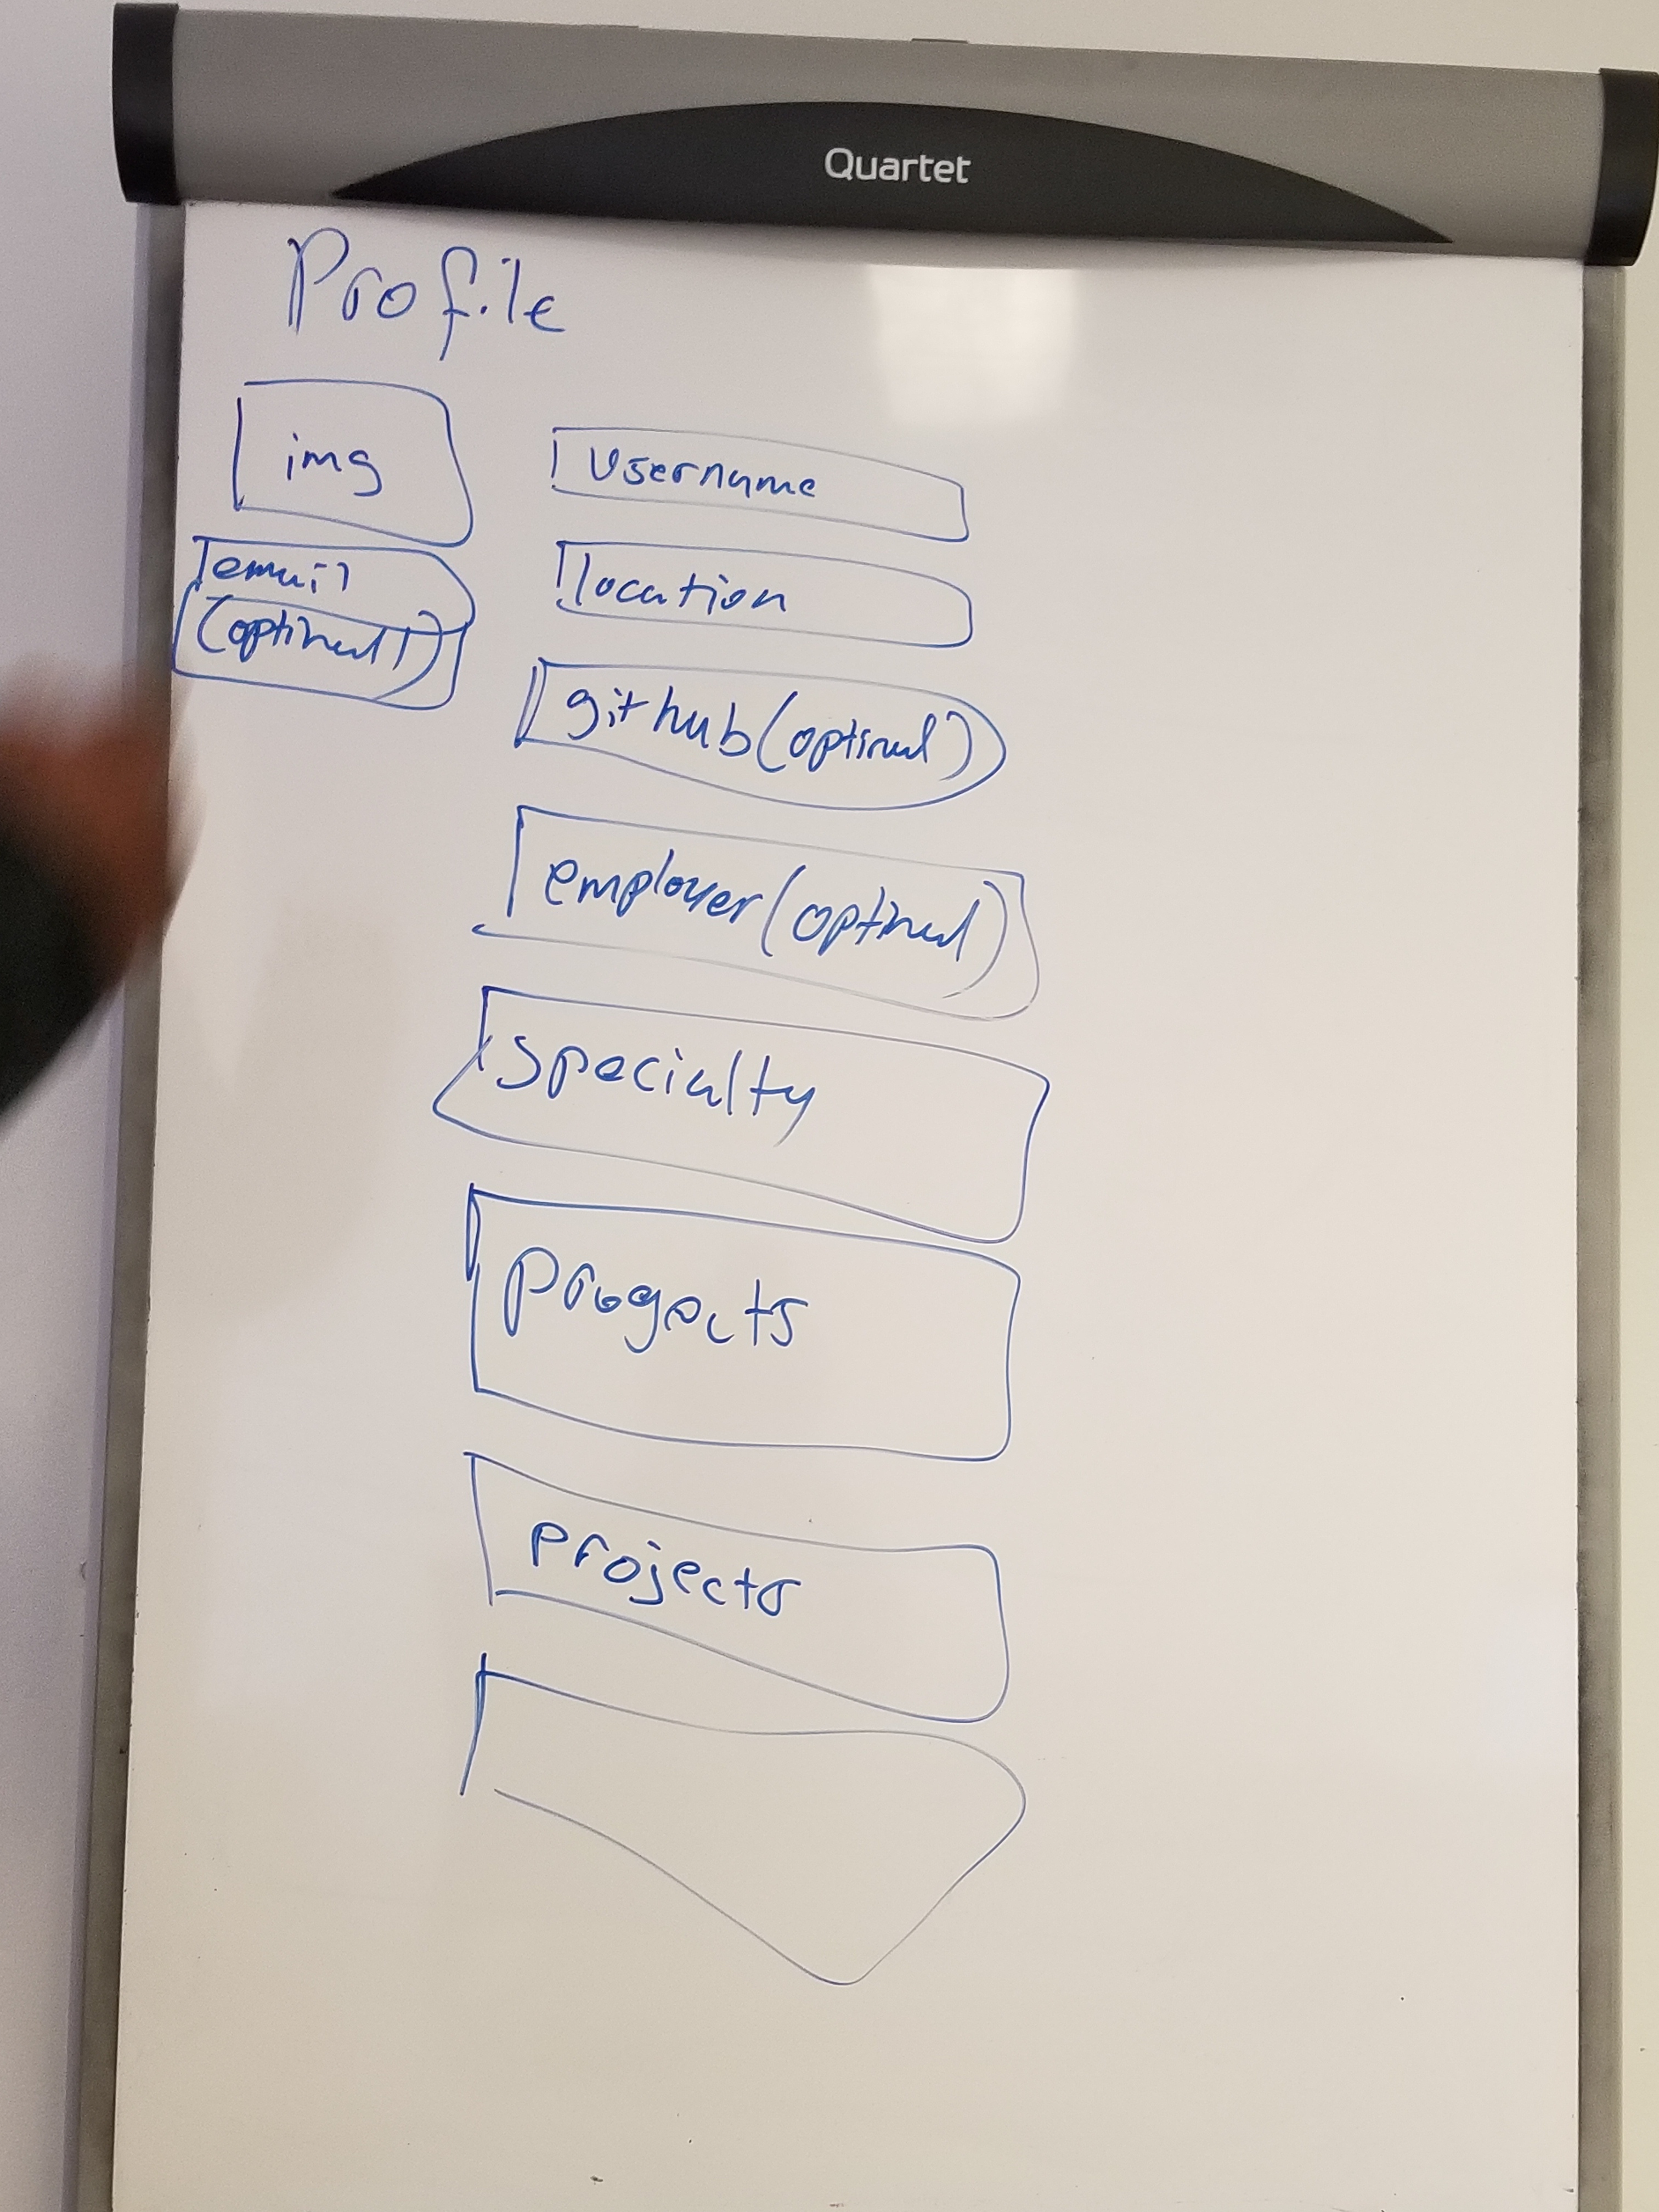 Quartet
Profile
img
Username
email
(optinal)
location
github (optinal)
employer (optinal)
specialty
progects
projects